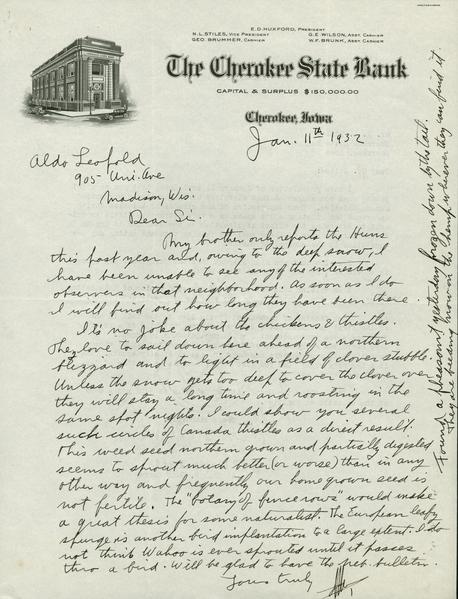 E.D. HUXFORD, PRESIDENT
N.L. STILES, VICE PRESIDENT
G.E. WILSON, ASST. CASHIER
GEO. BRUMMER, CASHIER
W.F. BRUNK, ASST. CASHIER
The Cherokee State Bank
CAPITAL & SURPLUS $150,000.00
Cherokee, Iowa
Jan. 11th 1932
Aldo Leopold
905 Uni. Ave
Madison, Wis.
Dear Sir.
My brother only reports the Huns
this past year and, owing to the deep snow, I
have been unable to see any of the interested
observers in that neighborhood. As soon as I do
I will find out how long they have been there.
It's no joke about the chickens & thistles.
They love to sail down here ahead of a northern
blizzard and to light in a field of clover stubble.
Unless the snow gets too deep to cover the clover over
they will stay a long time and roosting in the
same spot nights. I could show you several
such circles of Canada thistles as a direct result.
This weed seed northern grown and partially digested
seems to sprout much better (or worse) than in any
other way and frequently our home grown seed is
not fertile. The "botany of fence rows" would make
a great thesis for some naturalist. The European leafy
spurge is another bird implantation to a large extent. I do
not think Wahoo is ever sprouted until it passes
thro a bird. Will be glad to have the feb. bulletin.
Yours truly
Found a pheasant yesterday frozen down by the tail.
They are feeding now on the hemp wherever they can find it.